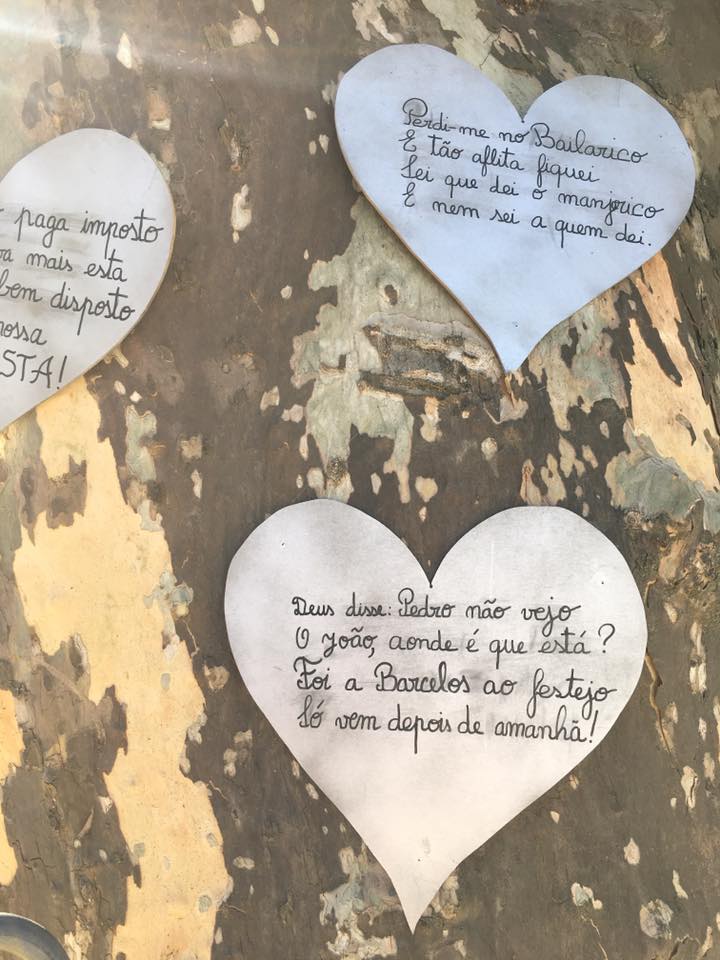 paga imposto
mais esta
bem disposto
Perdi-me no Bailarico
E tão aflita fiquei
Sei que dei o manjerico
E nem sei a quem dei.
Deus disse: Pedro não vejo
O João, aonde é que está?
Foi a Barcelos ao festejo
Só vem depois de amanhã!